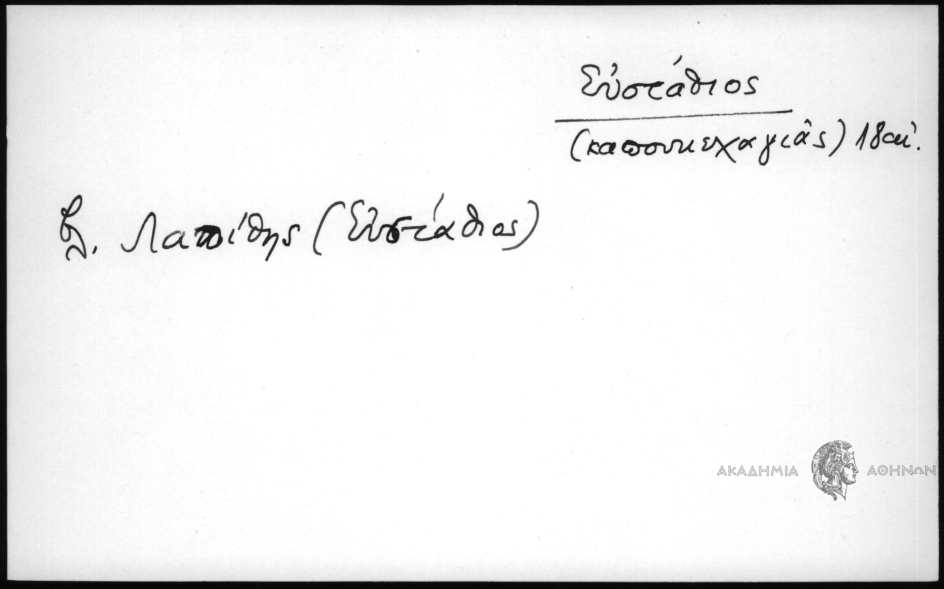 Εὐστάθιος
(καπουκεχαγιᾶς) 18 αἰ.
βλ. Λαπίθης (Εὐστάθιος)
ΑΚΑΔΗΜΙΑ ΑΘΗΝΩΝ